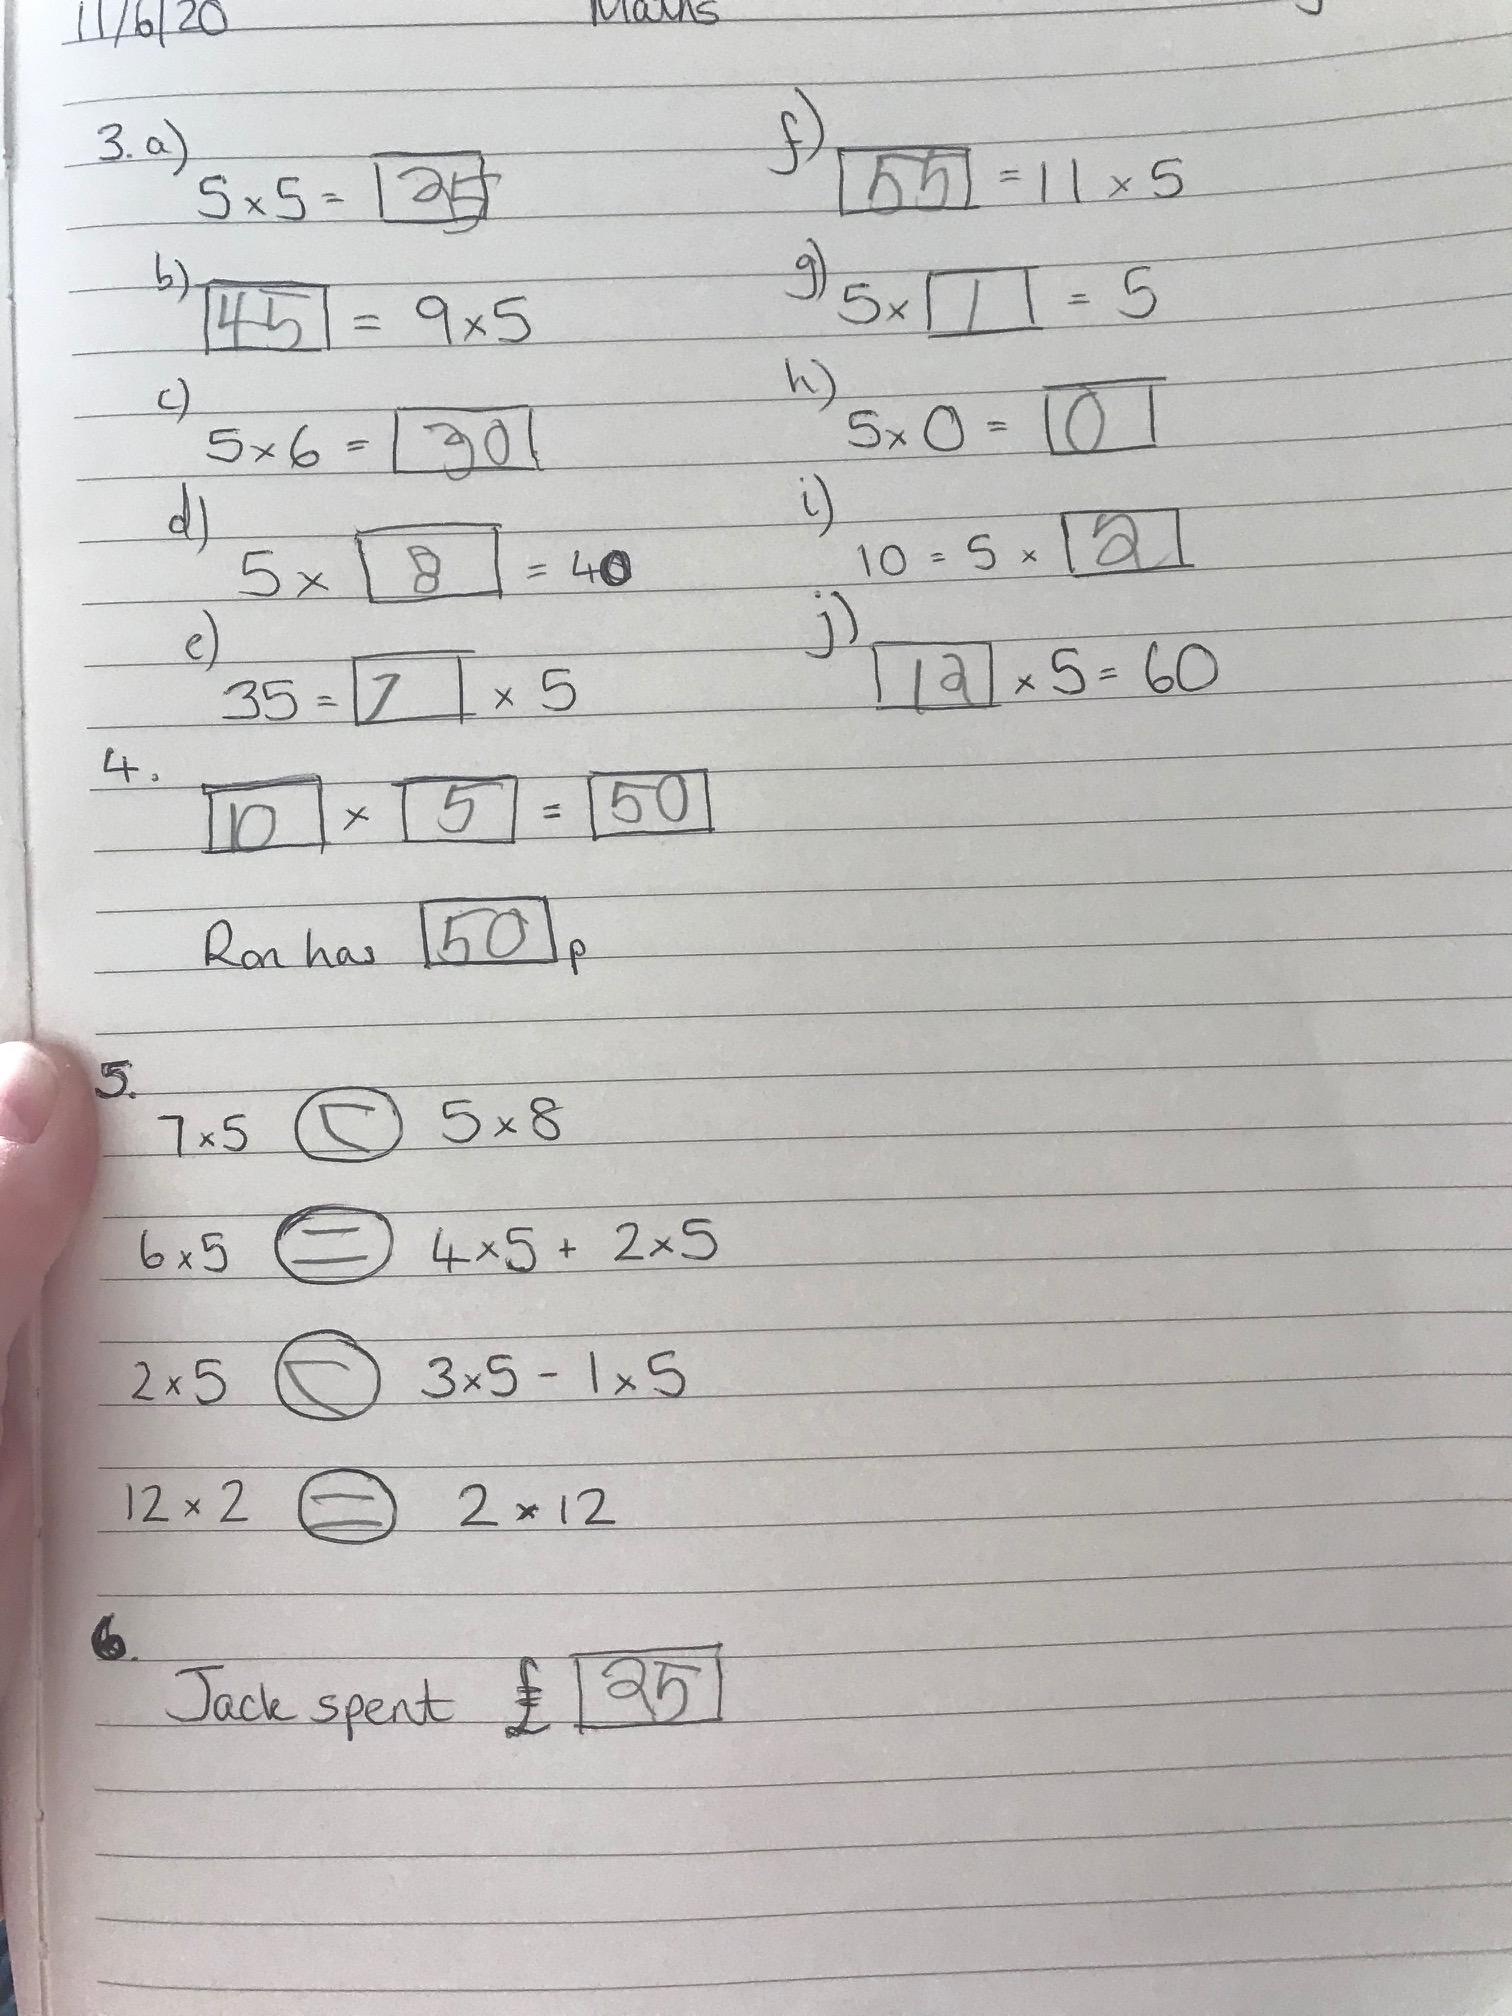 11/6/20 Maths
3. a) 5 × 5 = 25
b) 45 = 9 × 5
c) 5 × 6 = 30
d) 5 × 8 = 40
e) 35 = 7 × 5
f) 55 = 11 × 5
g) 5 × 1 = 5
h) 5 × 0 = 0
i) 10 = 5 × 2
j) 12 × 5 = 60
4.
10 × 5 = 50
Ron has 50 p
5.
7 × 5 < 5 × 8
6 × 5 = 4 × 5 + 2 × 5
2 × 5 < 3 × 5 - 1 × 5
12 × 2 = 2 × 12
6.
Jack spent £ 25